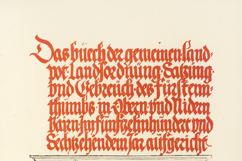 Das büech der gemeinen land-
pot. Landsordnung. Satzung.
vnd Gebreuch des Fürstenn-
thumbs in Obern vnd Nidern
Bairn Im fünftzehnhundert vnd
Sechtzehendem Jar aufgericht